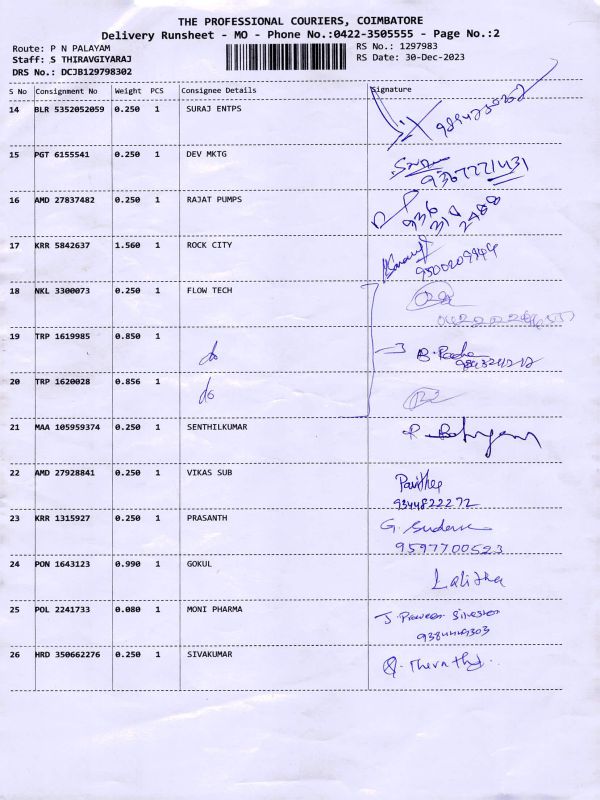 THE PROFESSIONAL COURIERS, COIMBATORE
Delivery Runsheet - MO - Phone No.:0422-3505555 - Page No.:2
Route: P N PALAYAM
RS No.: 1297983
Staff: S THIRAVGIYARAJ
RS Date: 30-Dec-2023
DRS No.: DCJB129798302
S No Consignment No Weight PCS Consignee Details Signature
14 BLR 5352052059 0.250 1 SURAJ ENTPS
15 PGT 6155541 0.250 1 DEV MKTG
9367221431
16 AMD 27837482 0.250 1 RAJAT PUMPS
936
319
2488
17 KRR 5842637 1.560 1 ROCK CITY
9500209949
18 NKL 3300073 0.250 1 FLOW TECH
19 TRP 1619985 0.850 1 do
20 TRP 1620028 0.856 1 do
21 MAA 105959374 0.250 1 SENTHILKUMAR
22 AMD 27928841 0.250 1 VIKAS SUB
9344822272
23 KRR 1315927 0.250 1 PRASANTH
9597700523
24 PON 1643123 0.990 1 GOKUL Lalitha
25 POL 2241733 0.080 1 MONI PHARMA
26 HRD 350662276 0.250 1 SIVAKUMAR